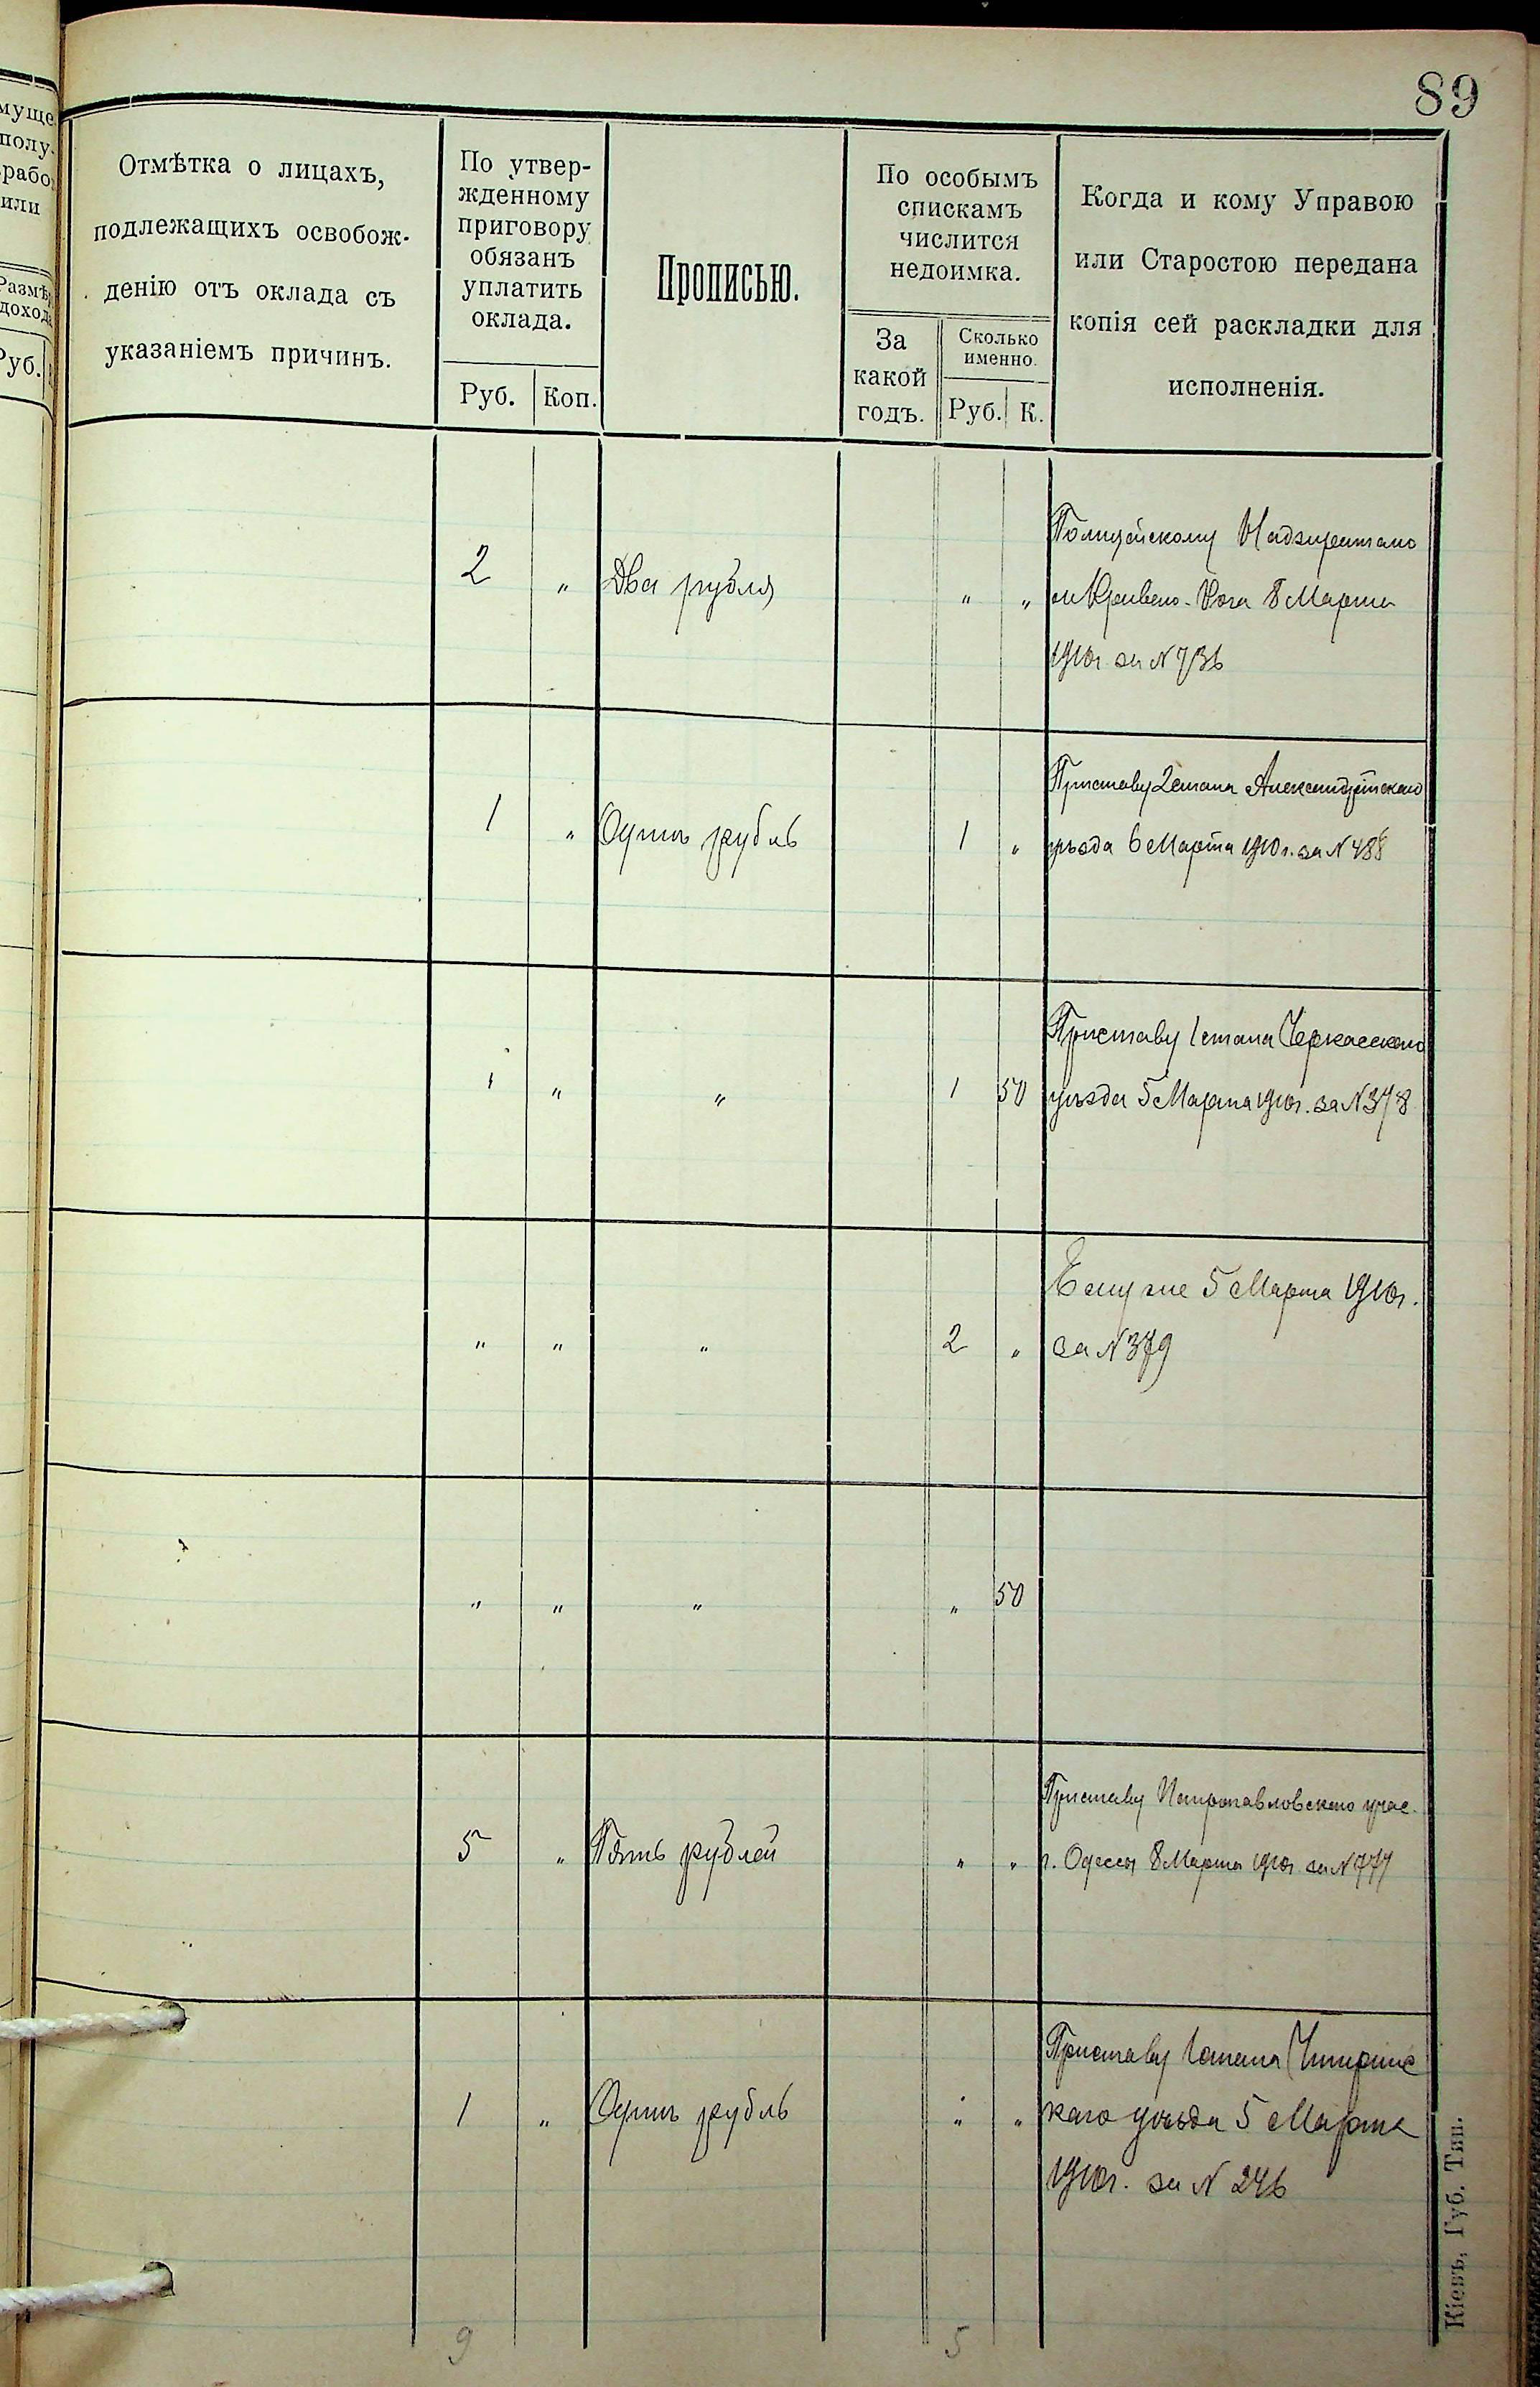 89
муще
полу-
рабо
или
Размѣ
доход
Руб.
Отмѣтка о лицахъ,
подлежащихъ освобож-
денію отъ оклада съ
указаніемъ причинъ.
По утвер-
жденному
приговору
обязанъ
уплатить
оклада.
Руб. Коп.
Прописью.
По особымъ
спискамъ
числится
недоимка.
За
какой
годъ.
Сколько
именно.
Руб. К.
Когда и кому Управою
или Старостою передана
копія сей раскладки для
исполненія.
Полицейскому Надзирателю
2 " Два рубля " " м Кривого-Рога 8 Марта
1910г за N 736
Приставу 2 стана Александрійскаго
1 " Одинъ рубль 1 " уѣзда 6 Марта 1910г. за N 488
Приставу 1 стана Черкасскаго
1 " " 1 50 уѣзда 5 Марта 1910г. за N 378
Ему же 5 Марта 1910г.
" " " 2 " за N 379
" " " " 50
Приставу Петропавловскаго учас.
5 " Пять рублей " " г. Одессы 8 Марта 1910г за N 777
Приставу 1 стана Чигиринс
1 " Одинъ рубль " " каго уѣзда 5 Марта
1910г. за N 246
9 5
Кіевъ, Губ. Тип.